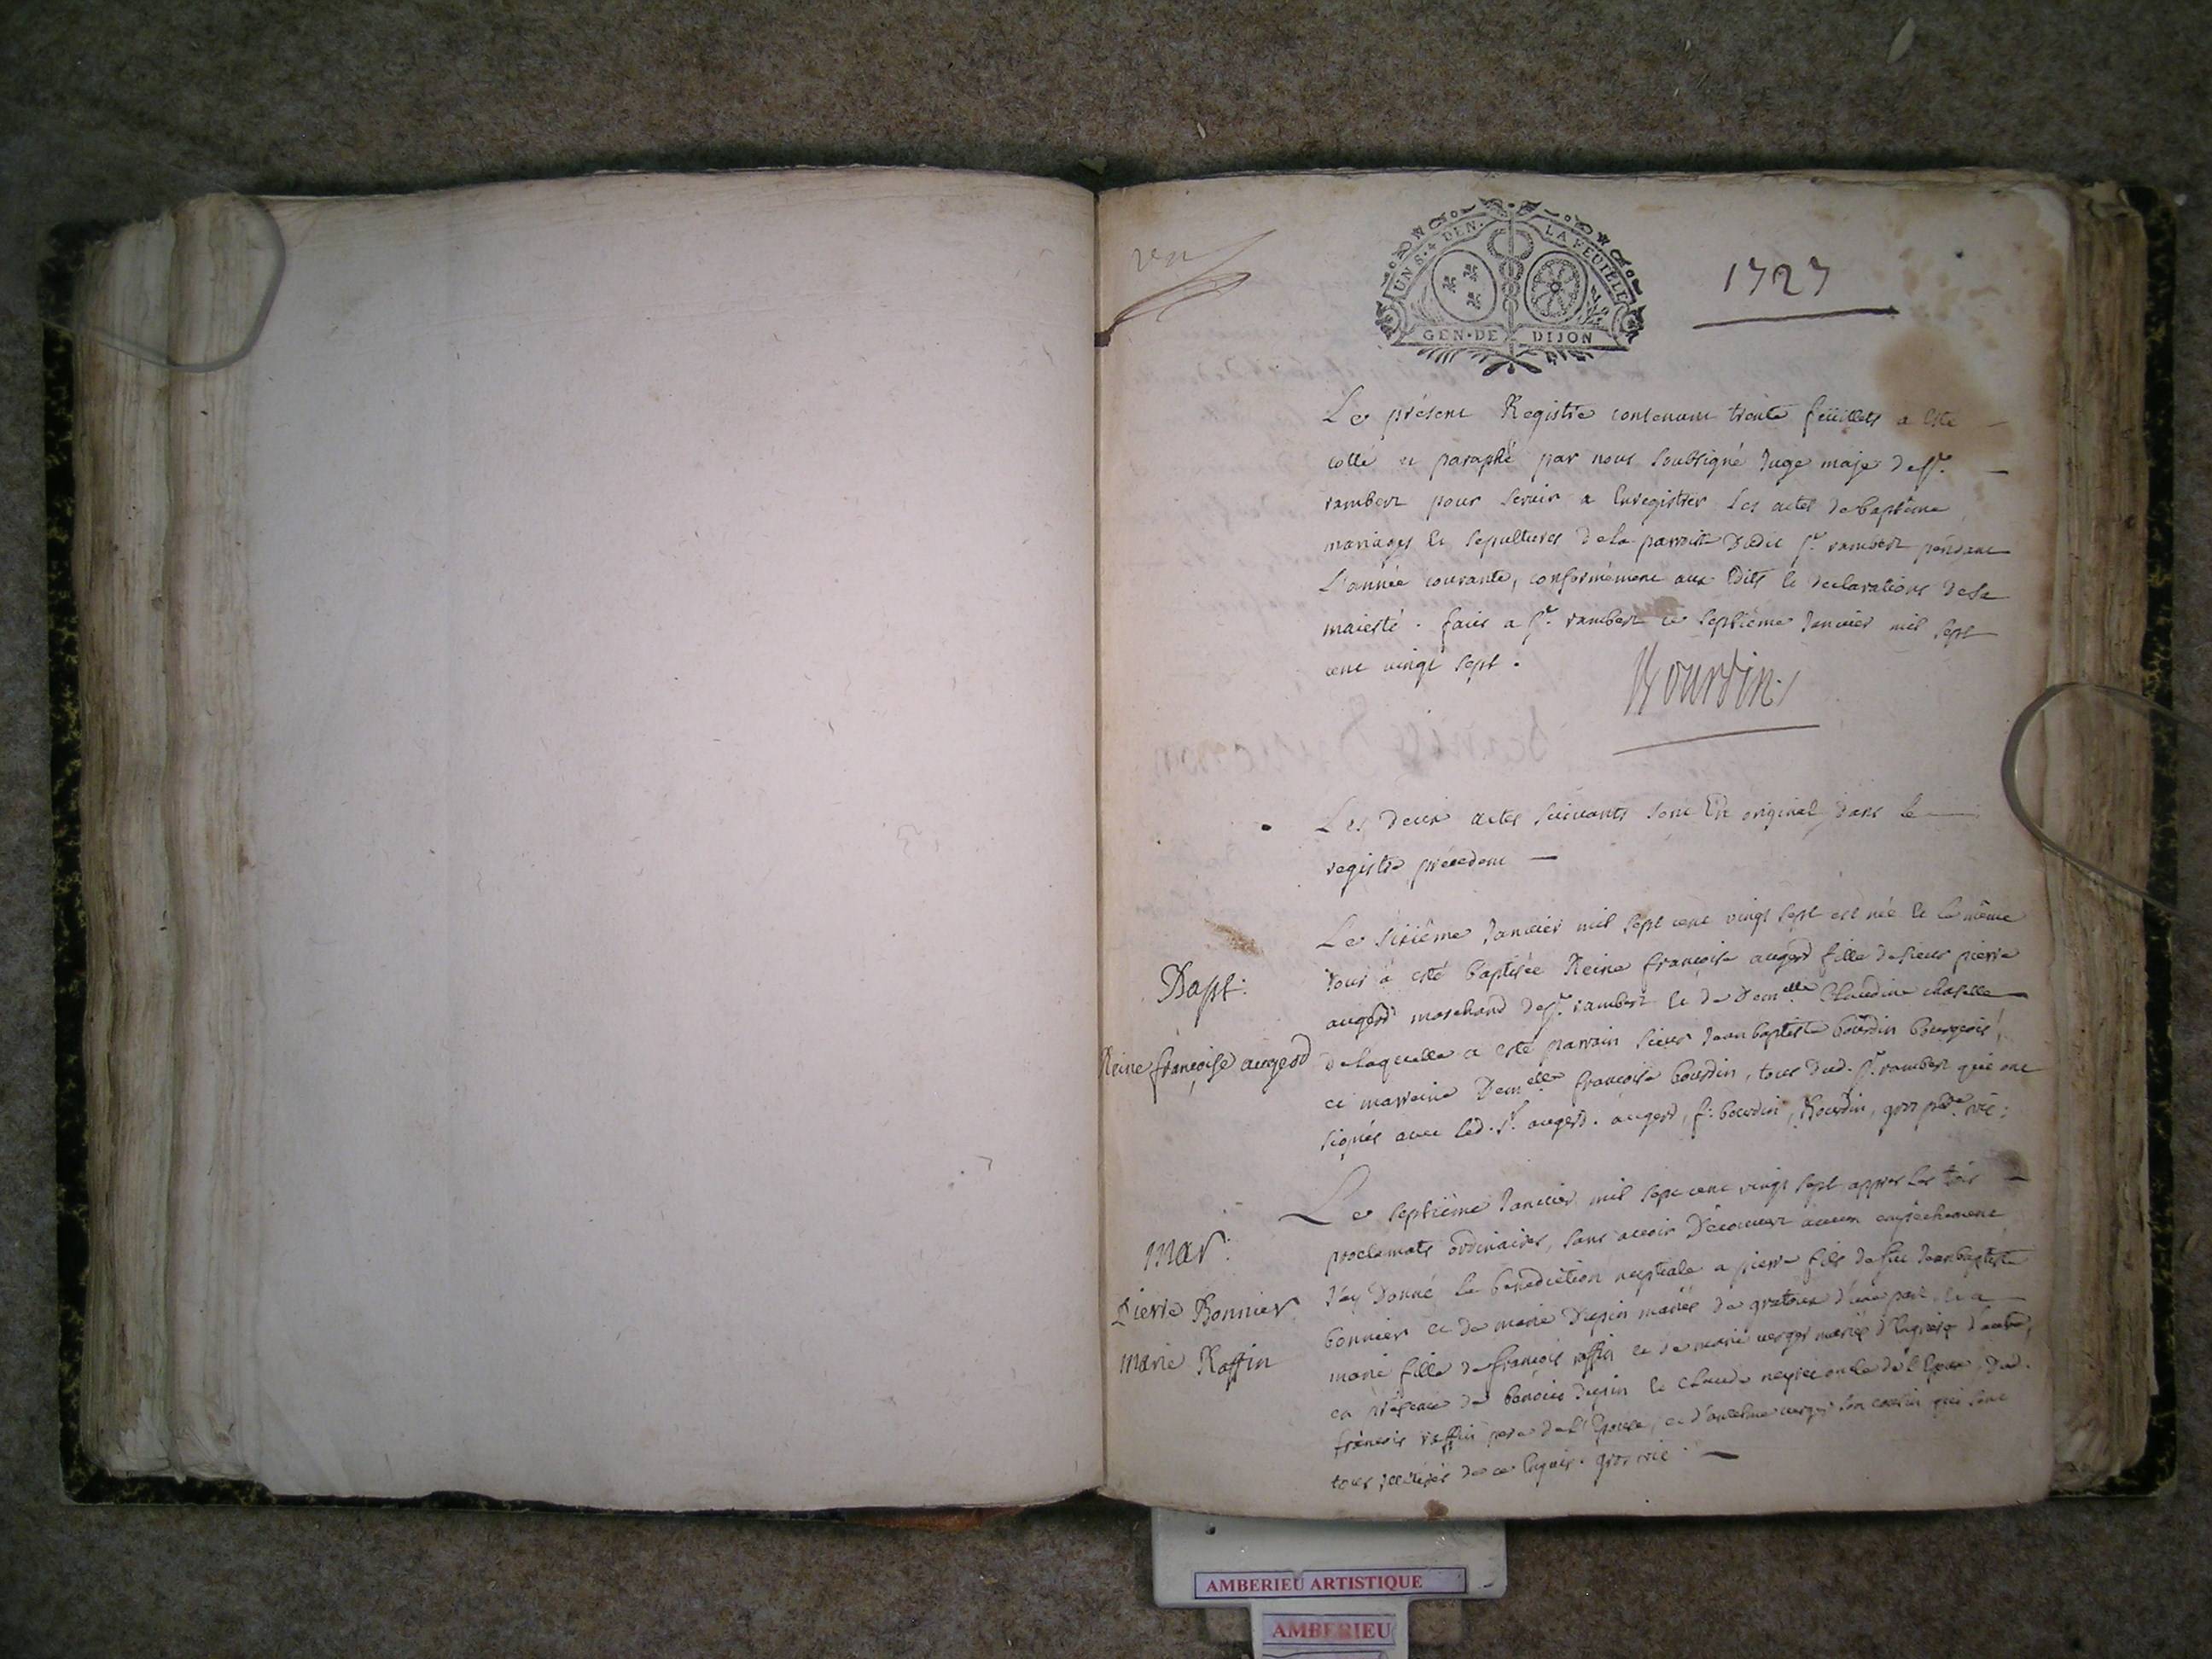 UN S. 4 DEN. LA FEUILLE
GEN. DE DIJON
1727
Le présent Registre contenant trente feüillets a esté
cotté et paraphé par nous soubsigné Juge maje de St.
rambert pour servir a Enregistrer Les actes de baptême
mariages et sepultures de la parroisse dudit St. rambert pendant
L'année courante, conformément aux Edits et declarations de sa
maiesté. fait a St. rambert ce septième Janvier mil sept
cent vingt sept.
Bourdin
Les deux actes suivants sont En original dans le
registre précedent
Bapt:
Reine françoise augerd
Le sixième Janvier mil sept cent vingt sept est née et le même
Jour a esté baptisée Reine françoise augerd fille de sieur pierre
augerd marchand de St. rambert et de Demelle Claudine
de laquelle a esté parrain sieur Jean baptiste bourdin bourgeois,
et marreine Demelle françoise bourdin, tous dud. St. rambert qui ont
signés avec led. Sr. augerd. augerd, f: bourdin, Bourdin, vic:
mar:
Pierre Bonnier
marie Raffin
Le septième Janvier mil sept cent vingt sept appres les trois
proclamats ordinaires, sans avoir Découvert aucun empêchement
J'ay Donné la benediction nuptiale a pierre fils de feu Jean baptiste
bonnier et de marie Dupin mariés de d'une part, et a
marie fille de françois raffin et de marie verger mariés d'autre,
en présence de benoit Dupin et Claude oncle de l'Epoux, dud.
françois raffin pere de l'Epouse, et d'anselme verger son cousin qui sont
tous illitérés de ce Enquis. vic:
AMBERIEU ARTISTIQUE
AMBERIEU